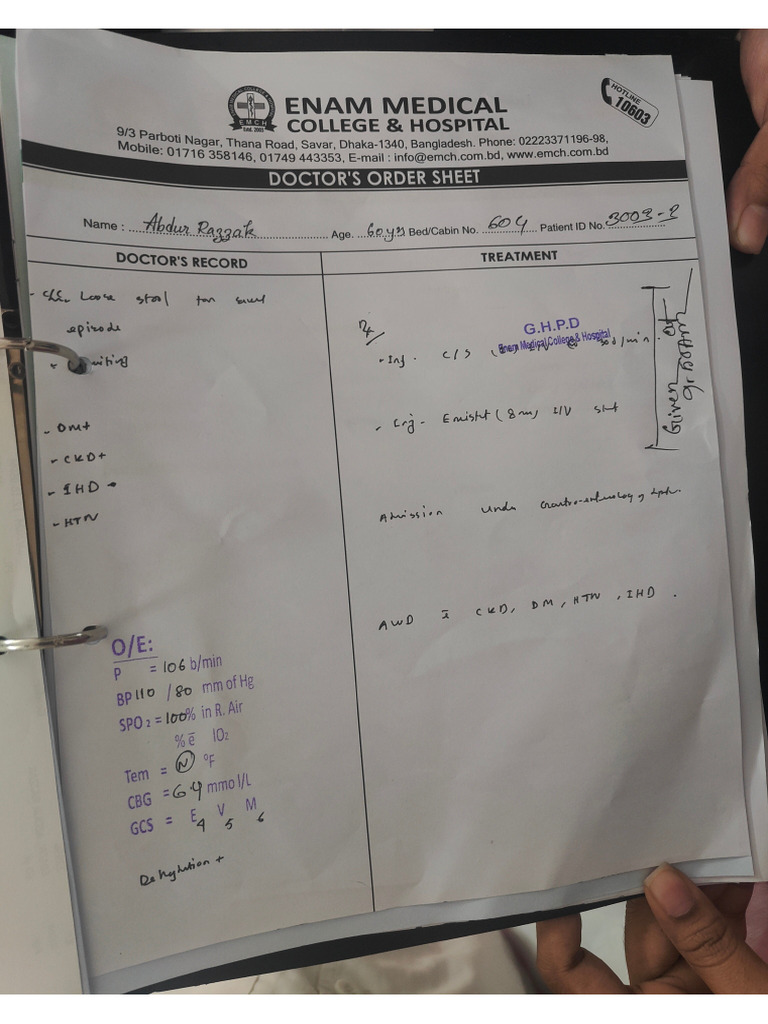 ENAM MEDICAL
COLLEGE & HOSPITAL
EMCH
Estd. 2003
HOTLINE
10603
9/3 Parboti Nagar, Thana Road, Savar, Dhaka-1340, Bangladesh. Phone: 02223371196-98,
Mobile: 01716 358146, 01749 443353, E-mail : info@emch.com.bd, www.emch.com.bd
DOCTOR'S ORDER SHEET
Name : Abdur Razzak Age. 60yrs Bed/Cabin No. 604 Patient ID No. 3003-2
DOCTOR'S RECORD
- C/C- Loose stool for several
episode
- DM+
- CKD+
- IHD
- HTN
O/E:
P = 106 b/min
BP 110 / 80 mm of Hg
SPO2 = 100% in R. Air
% ē IO2
Tem = N °F
CBG = 6.4 mmol/L
GCS = E4 V5 M6
Dehydration +
TREATMENT
Rx
G.H.P.D
Enam Medical College & Hospital
- Inf. C/S d/min
- Inj- Emistat (8mg) I/V stat
Given at
Admission under Gastroenterology dept.
AWD c̄ CKD, DM, HTN, IHD.